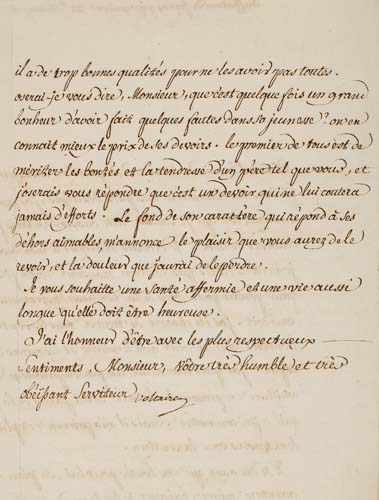 il a de trop bonnes qualités pour ne les avoir pas toutes.
oserai-je vous dire, Monsieur, que c'est quelque fois un grand
bonheur d'avoir fait quelques fautes dans sa jeunesse? on en
connait mieux le prix de ses devoirs. le premier de tous est de
mériter les bontés et la tendresse d'un père tel que vous, et
j'oserais vous répondre que c'est un devoir qui ne lui coutera
jamais d'efforts. Le fond de son caractère qui répond à ses
dehors aimables m'annonce le plaisir que vous aurez de le
revoir, et la douleur que j'aurai de le perdre.
Je vous souhaitte une santé affermie et une vie aussi
longue qu'elle doit être heureuse.
J'ai l'honneur d'être avec les plus respectueux
Sentiments, Monsieur, Vôtre très humble et très
obéissant Serviteur Voltaire